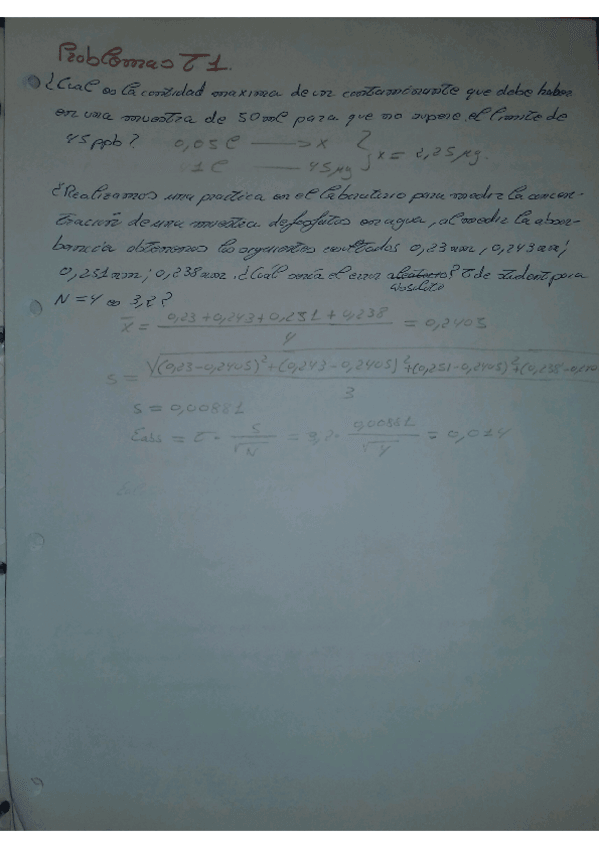 Problemas T 1.
¿Cual es la cantidad maxima de un contaminante que debe haber
en una muestra de 50 ml para que no supere el limite de
45 ppb? 0,05 l → x } x = 2,25 µg.
1 l — 45 µg
¿Realizamos una practica en el laboratorio para medir la concen-
tración de una muestra de fosfatos en agua, al medir la absor-
bancia obtenemos los siguientes resultados 0,23 nm, 0,243 nm,
0,251 nm; 0,238 nm. ¿Cual sería el error absoluto? T de student para
N = 4 es 3,2?
x̄ = (0,23 + 0,243 + 0,251 + 0,238) / 4 = 0,2405
s = √((0,23 - 0,2405)² + (0,243 - 0,2405)² + (0,251 - 0,2405)² + (0,238 - 0,240 / 3
s = 0,00881
Eabs = T · s / √N = 3,2 · 0,00881 / √4 = 0,014